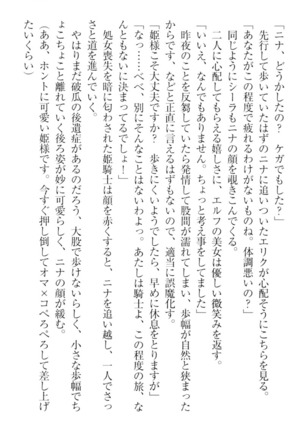 「ニナ、どうかしたの？　ケガでもした？」
先行して歩いていたはずのニナに追いついたエリクが心配そうにこちらを見る。
「あなたがこの程度で疲れるわけがないものね。体調悪いの？」
同じようにシーラもニナの顔を覗きこんでくる。
二人に心配してもらえる嬉しさに、エルフの美女は優しい微笑みを返す。
「いいえ、なんでもありません。ちょっと考え事をしてました」
昨夜のことを反芻していたら発情して股間が濡れてしまい、歩幅が自然と狭まった
からです、などと正直に言えるはずもないので、適当に誤魔化す。
「姫様こそ大丈夫ですか？　歩きにくいようでしたら、早めに休息をとりますが」
「なっ……べ、べ、別にそんなことはないわよっ。あたしは騎士よ、この程度の旅、な
んともないに決まってるでしょ！」
処女喪失を暗に匂わされた姫騎士は顔を赤くすると、ニナを追い越し、一人でさっ
さと道を進んでいく。
やはりまだ破瓜の後遺症があるのだろう、大股で歩けないらしく、小さな歩幅でち
ょこちょこと離れていく後ろ姿が妙に可愛らしく、ニナの顔が緩む。
（ああ、ホントに可愛い姫様です。今すぐ押し倒してオマ×コぺろぺろして差し上げ
たいくらい）